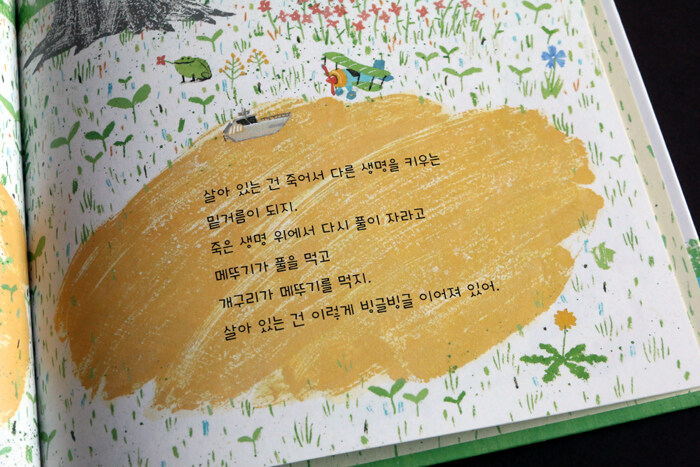 살아 있는 건 죽어서 다른 생명을 키우는
밑거름이 되지.
죽은 생명 위에서 다시 풀이 자라고
메뚜기가 풀을 먹고
개구리가 메뚜기를 먹지.
살아 있는 건 이렇게 빙글빙글 이어져 있어.